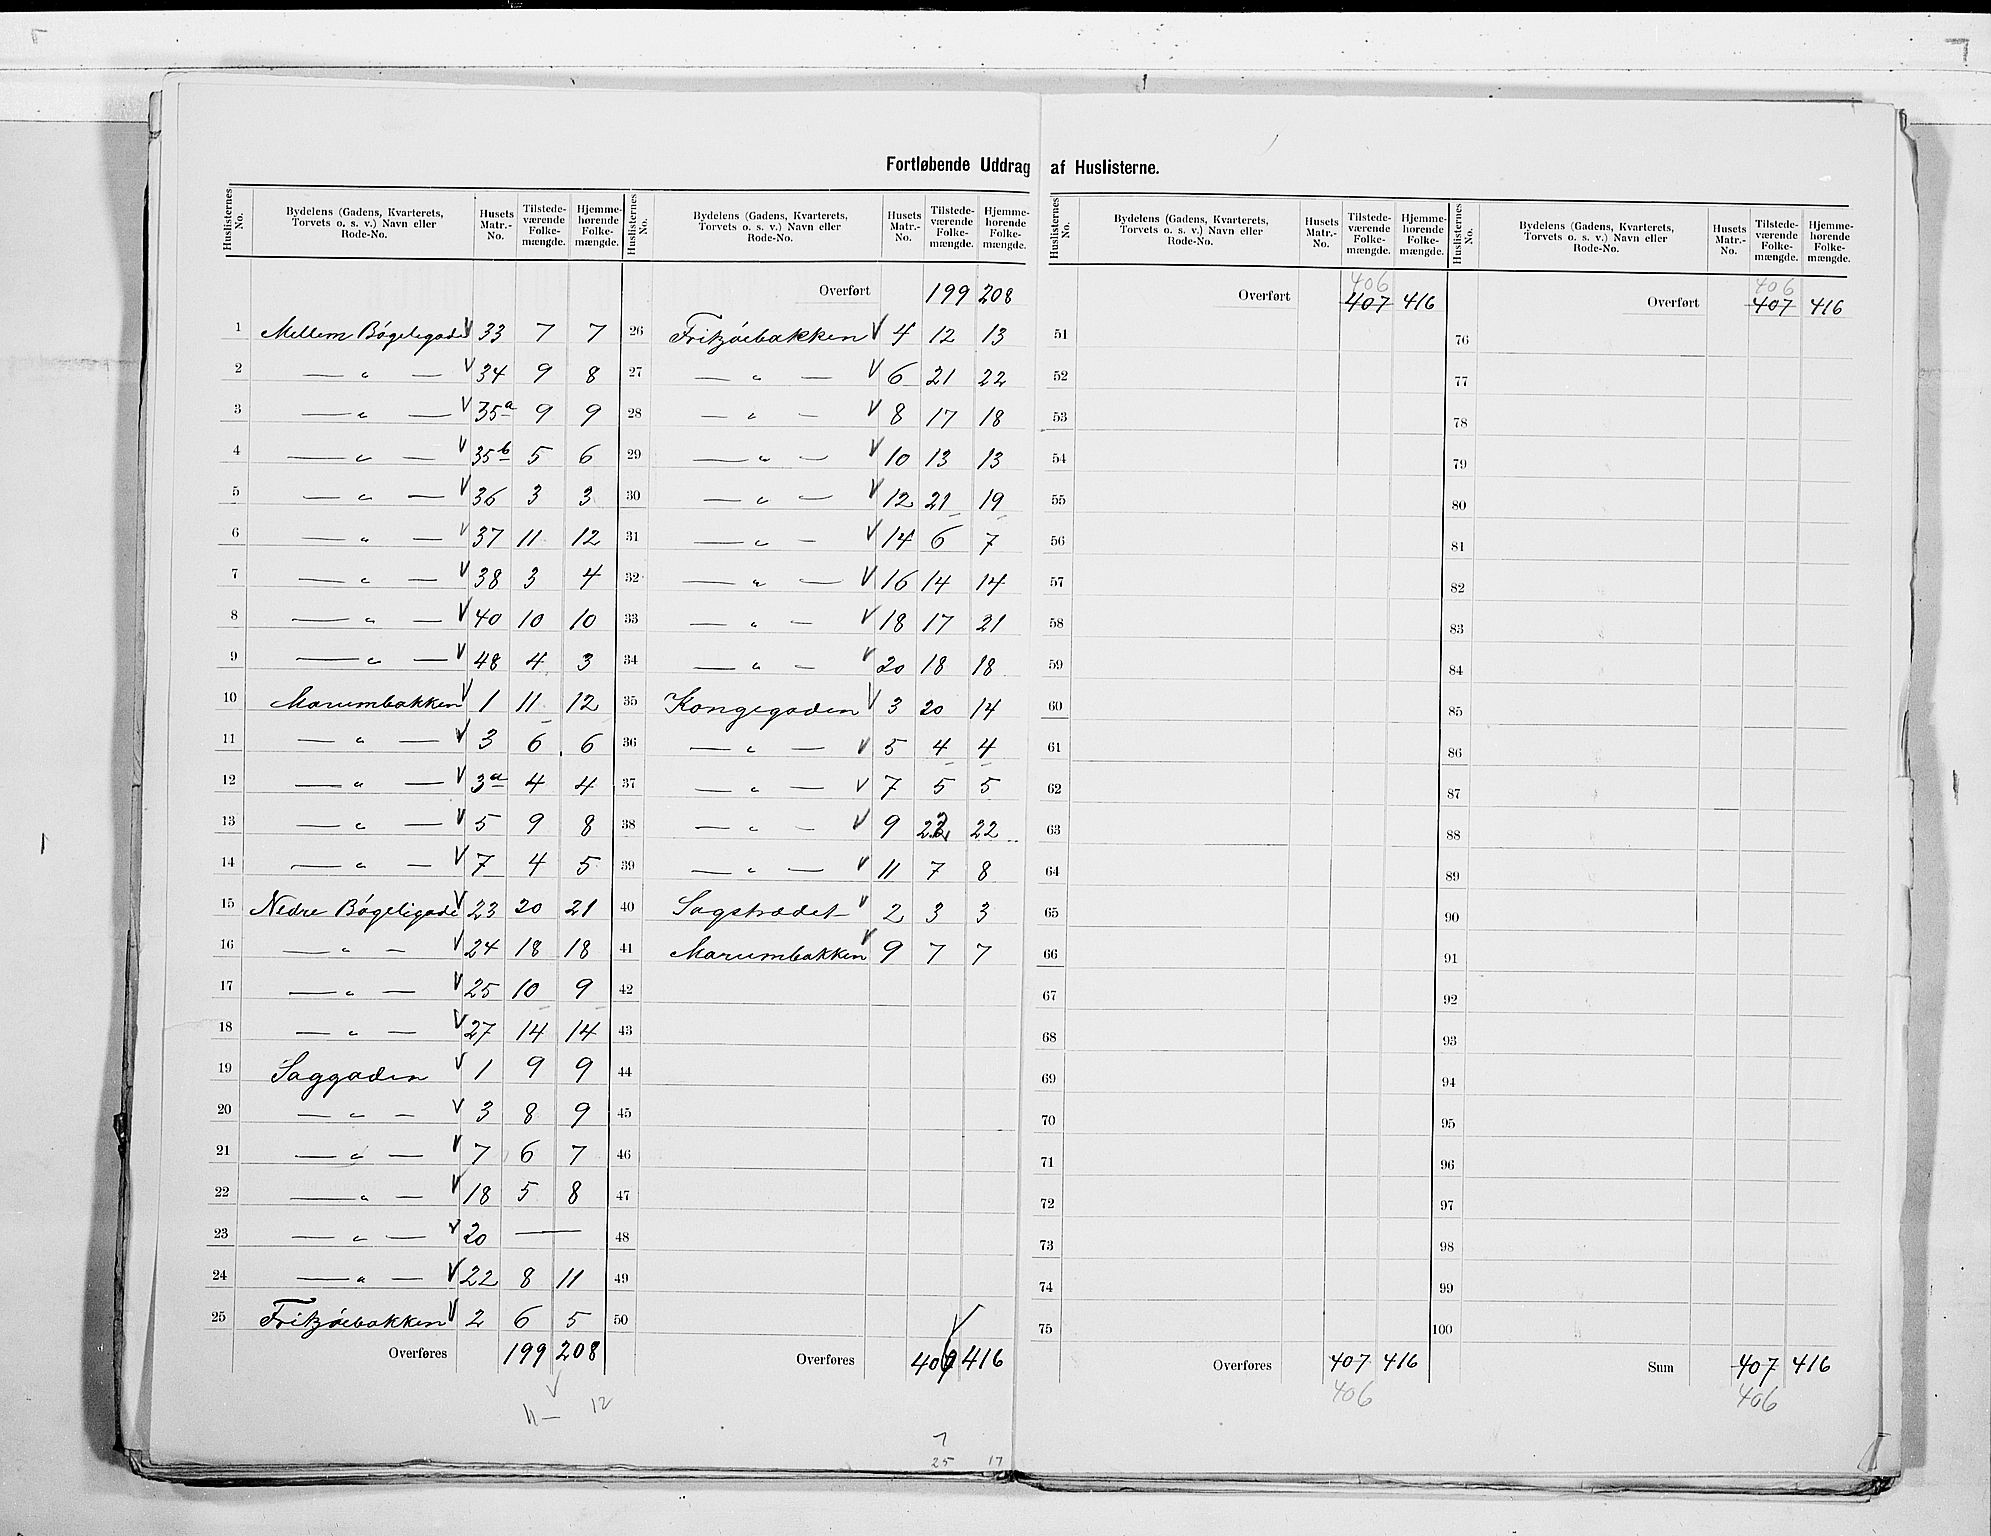 Fortløbende Uddrag af Huslisterne.
Huslisternes No. | Bydelens (Gadens, Kvarterets, Torvets o. s. v.) Navn eller Rode-No. | Husets Matr.-No. | Tilstedeværende Folkemængde. | Hjemmehørende Folkemængde.
1 Mellem Bögeligade V 33 7 7
2 — " — V 34 9 8
3 — " — V 35a 9 9
4 — " — V 35b 5 6
5 — " — V 36 3 3
6 — " — V 37 11 12
7 — " — V 38 3 4
8 — " — V 40 10 10
9 — " — V 48 4 3
10 Marumbakken V 1 11 12
11 — " — V 3 6 6
12 — " — V 3a 4 4
13 — " — V 5 9 8
14 — " — V 7 4 5
15 Nedre Bögeligade V 23 20 21
16 — " — V 24 18 18
17 — " — V 25 10 9
18 — " — V 27 14 14
19 Saggaden V 1 9 9
20 — " — V 3 8 9
21 — " — V 7 6 7
22 — " — V 18 5 8
23 — " — V 20 —
24 — " — V 22 8 11
25 Fritzöebakken V 2 6 5
Overføres 199 208
11 — 12
Huslisternes No. | Bydelens (Gadens, Kvarterets, Torvets o. s. v.) Navn eller Rode-No. | Husets Matr.-No. | Tilstedeværende Folkemængde. | Hjemmehørende Folkemængde.
Overført 199 208
26 Fritzöebakken V 4 12 13
27 — " — V 6 21 22
28 — " — V 8 17 18
29 — " — V 10 13 13
30 — " — V 12 21 19
31 — " — V 14 6 7
32 — " — V 16 14 14
33 — " — V 18 17 21
34 — " — V 20 18 18
35 Kongegaden V 3 20 14
36 — " — V 5 4 4
37 — " — V 7 5 5
38 — " — V 9 22
39 — " — V 11 7 8
40 Sagstrædet V 2 3 3
41 Marumbakken V 9 7 7
42
43
44
45
46
47
48
49
50
Overføres 406 416
7
25 17
Huslisternes No. | Bydelens (Gadens, Kvarterets, Torvets o. s. v.) Navn eller Rode-No. | Husets Matr.-No. | Tilstedeværende Folkemængde. | Hjemmehørende Folkemængde.
406
Overført 407 416
51
52
53
54
55
56
57
58
59
60
61
62
63
64
65
66
67
68
69
70
71
72
73
74
75
Overføres 407 416
406
Huslisternes No. | Bydelens (Gadens, Kvarterets, Torvets o. s. v.) Navn eller Rode-No. | Husets Matr.-No. | Tilstedeværende Folkemængde. | Hjemmehørende Folkemængde.
406
Overført 407 416
76
77
78
79
80
81
82
83
84
85
86
87
88
89
90
91
92
93
94
95
96
97
98
99
100
Sum 407 416
406